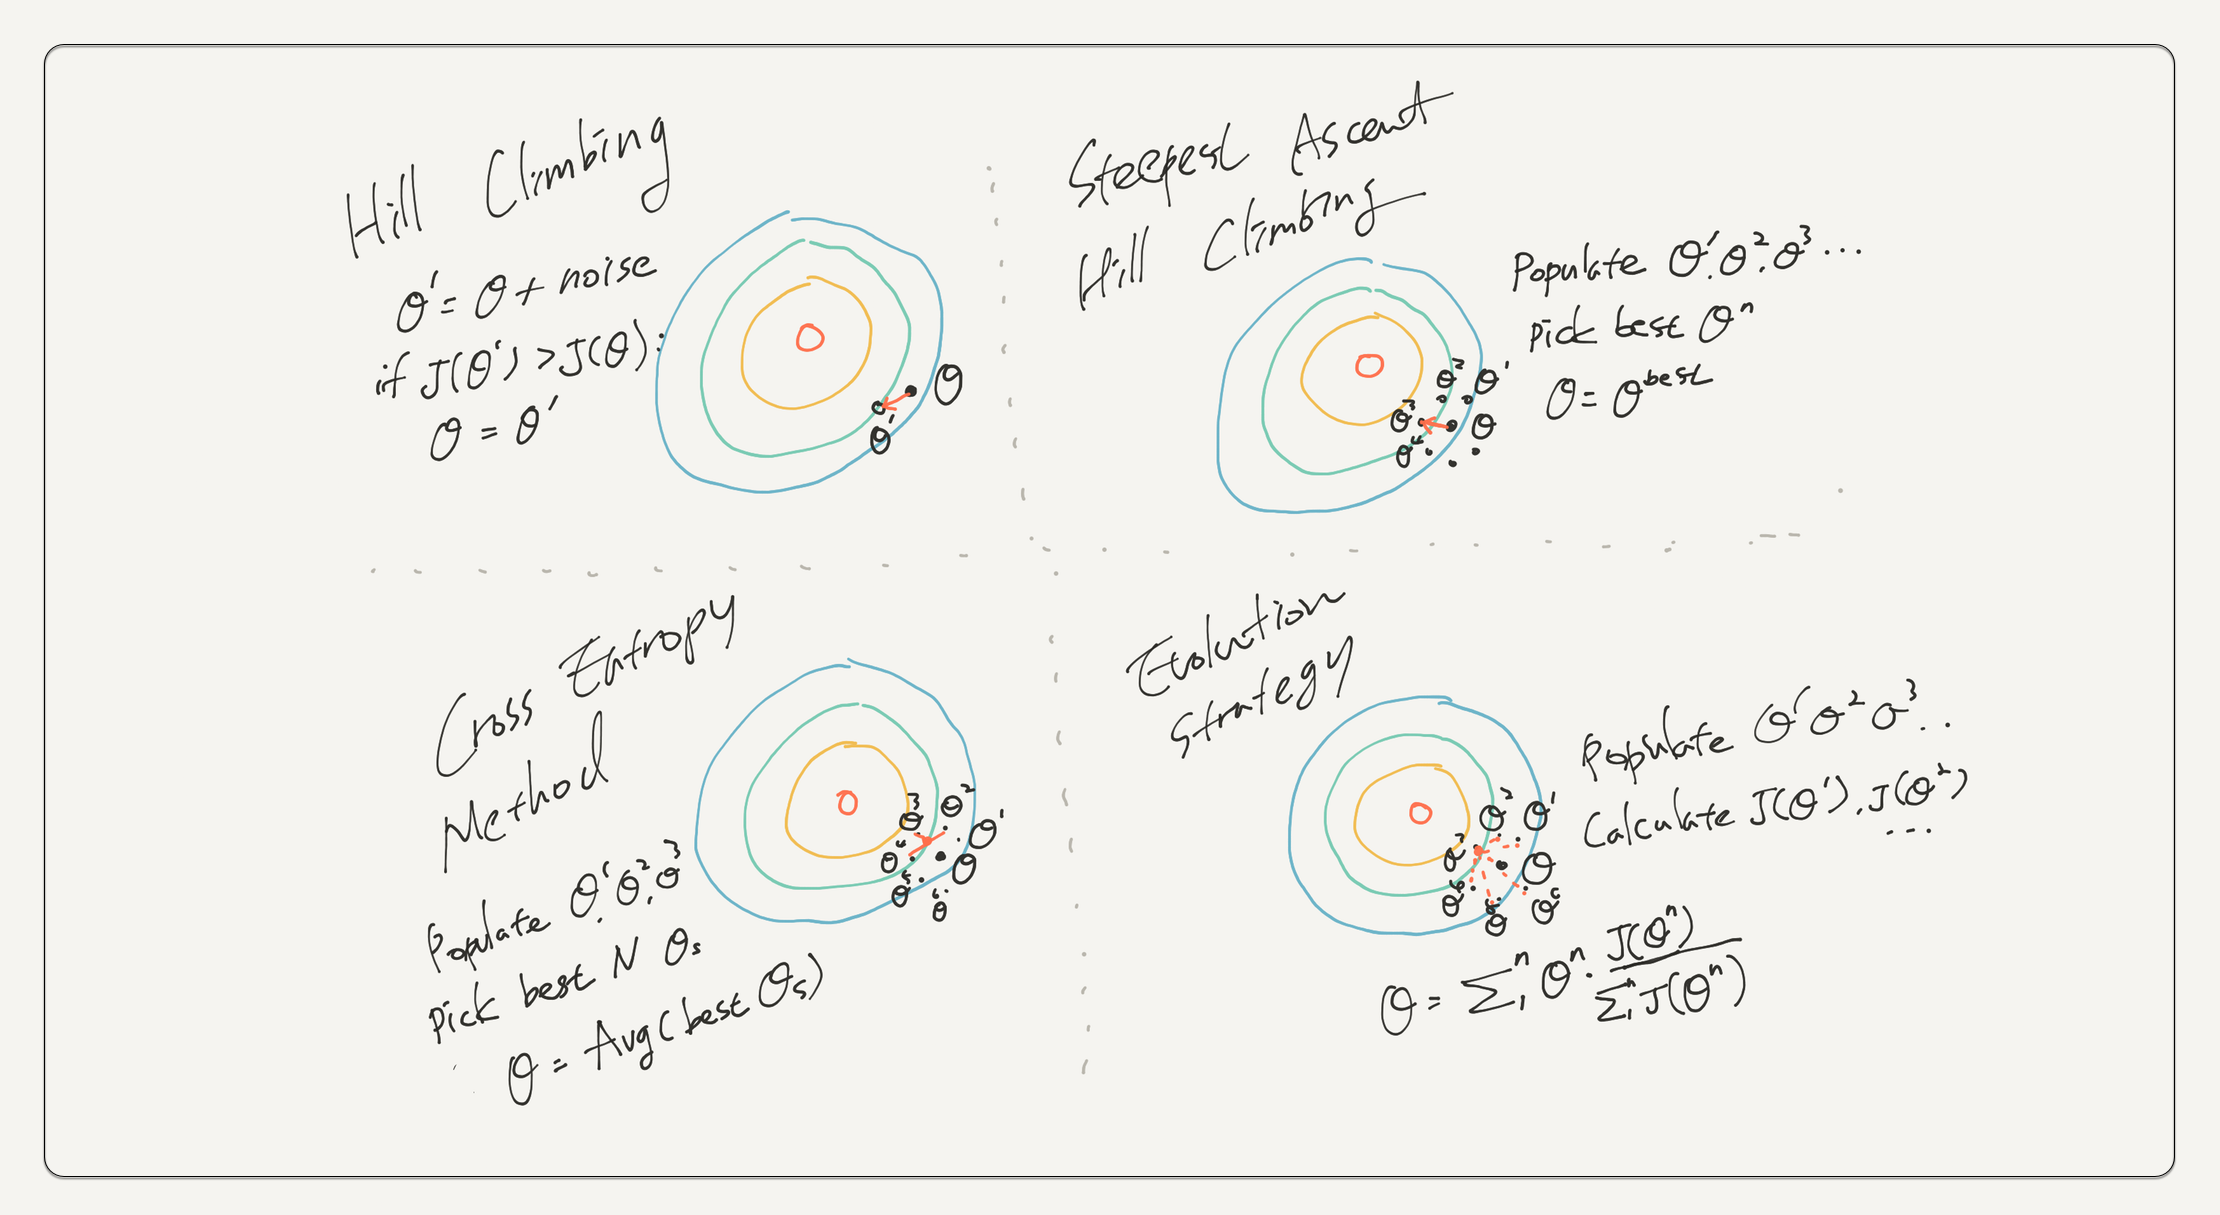 Hill Climbing
θ' = θ + noise
if J(θ') > J(θ):
θ = θ'
θ
θ'
Steepest Ascent
Hill Climbing
Populate θ¹, θ², θ³ ...
pick best θⁿ
θ = θ^best
θ² θ¹
θ³ θ
θ⁴
Cross Entropy
Method
Populate θ¹, θ², θ³
Pick best N θs
θ = Avg(best θs)
θ³ θ² θ¹
θ⁴ θ
θ⁵ θ⁶
Evolution
Strategy
Populate θ¹ θ² θ³ ..
Calculate J(θ¹), J(θ²)
...
θ² θ¹
θ³ θ
θ⁴ θ⁵ θ⁶
θ = Σ₁ⁿ θⁿ · J(θⁿ) / Σ₁ⁿ J(θⁿ)